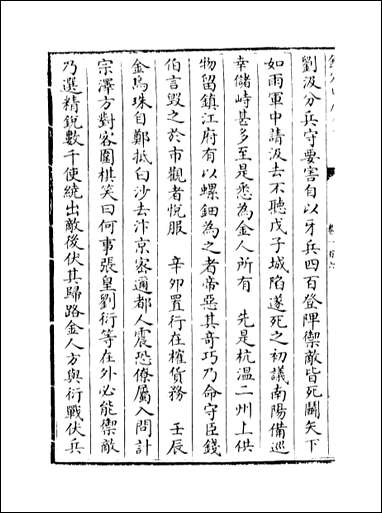 劉汲分兵守要害自以牙兵四百登陴禦敵皆死鬬矢下
如雨軍中請汲去不聽戊子城陷遂死之初議南陽備巡
幸儲峙甚多至是悉為金人所有　先是杭温二州上供
物留鎮江府有以螺鈿為之者帝惡其奇巧乃命守臣錢
伯言毀之於市觀者悅服　辛卯置行在榷貨務　壬辰
金烏珠自鄭抵白沙去汴京宻邇都人震恐僚屬入問計
宗澤方對客圍棋笑曰何事張皇劉衍等在外必能禦敵
乃選精銳數千使繞出敵後伏其歸路金人方與衍戰伏兵